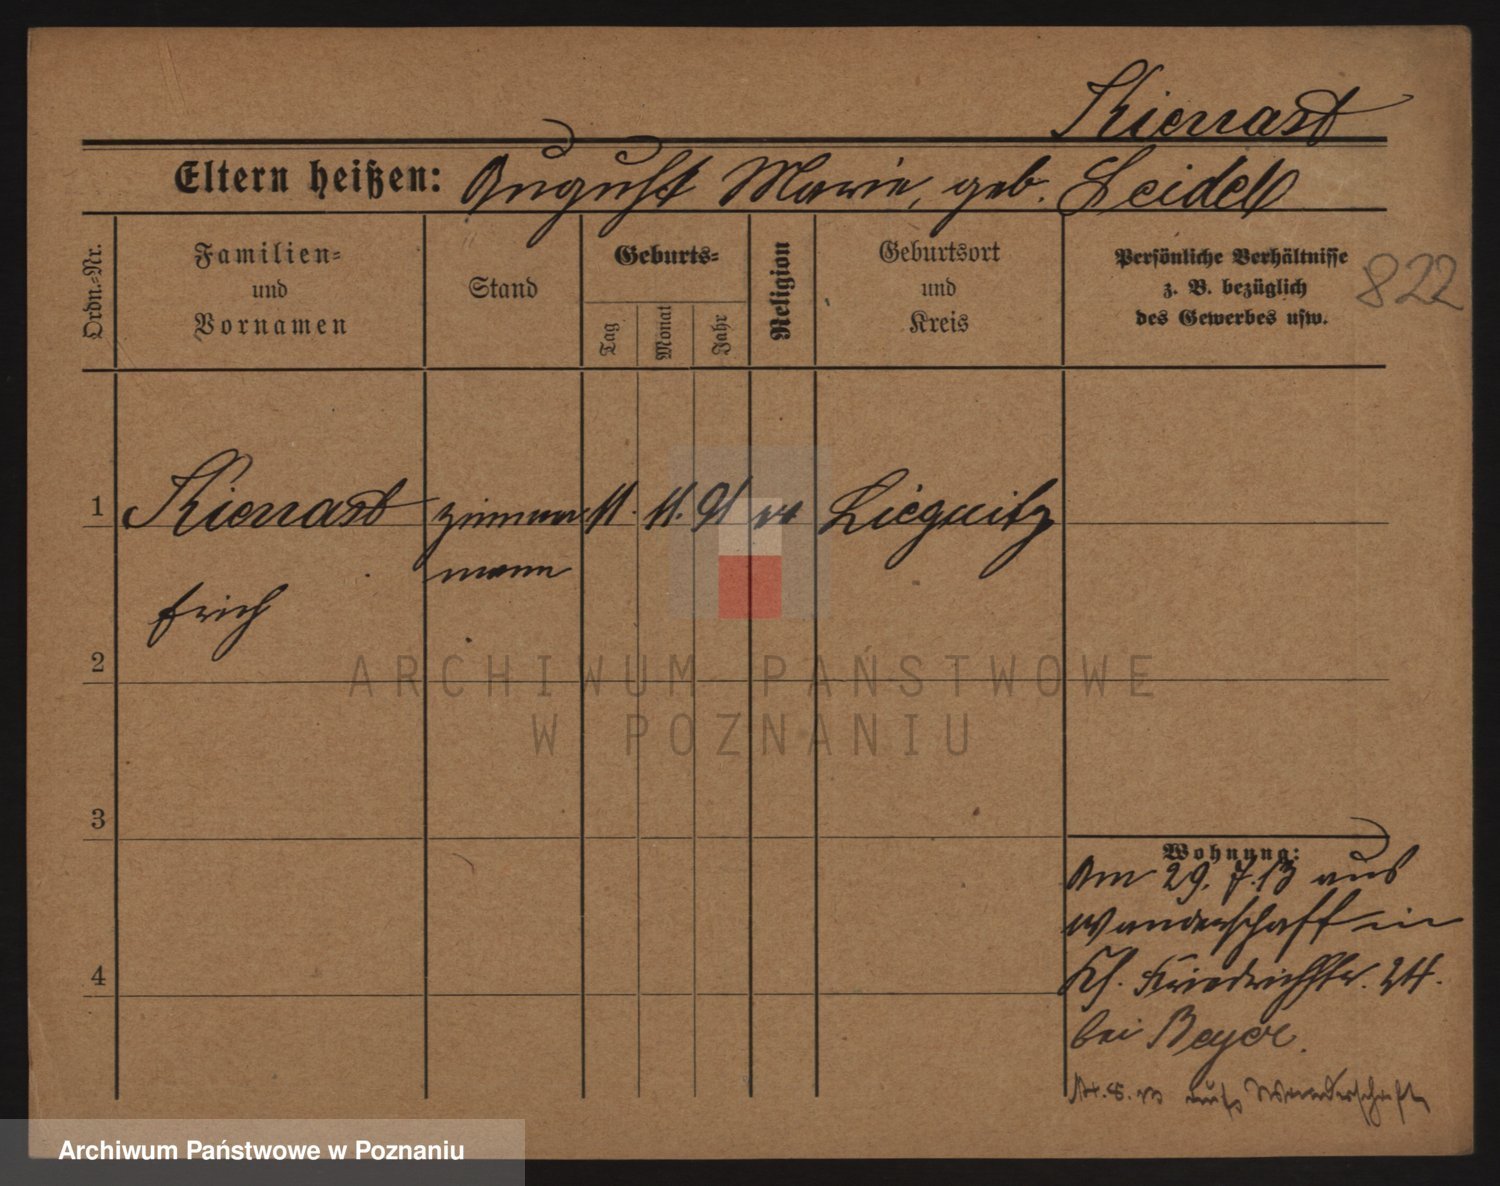 Kienast
Eltern heißen: August Marie, geb. Seidel
Ordn.-Nr.
Familien-
und
Vornamen
Stand
Geburts-
Tag
Monat
Jahr
Religion
Geburtsort
und
Kreis
Persönliche Verhältnisse
z. B. bezüglich
des Gewerbes usw.
822
1 Kienast Zimmer 11. 11. 91 ev Liegnitz
mann
Erich
2
ARCHIWUM PAŃSTWOWE
W POZNANIU
3
Wohnung:
Am 29. 7. 13 aus
Wanderschaft in
Friedrichstr. 24.
4
bei Beyer.
auf Wanderschaft
Archiwum Państwowe w Poznaniu